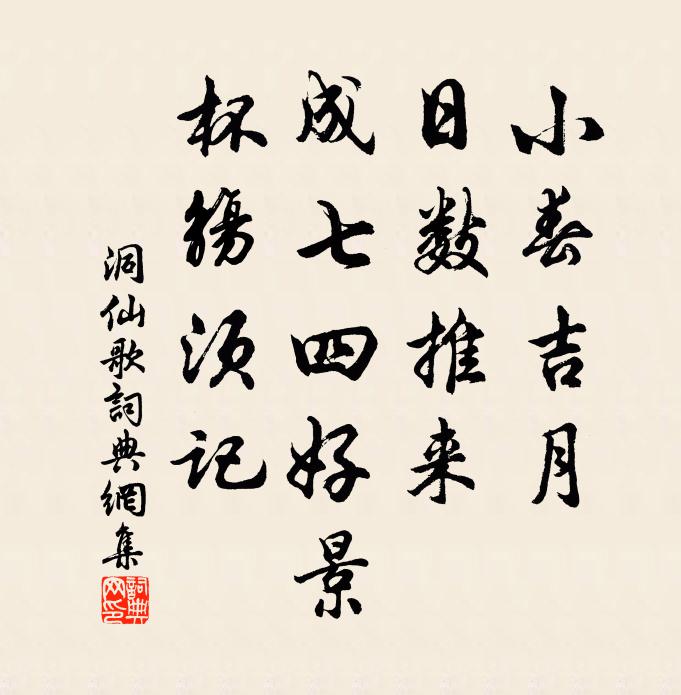 小春吉月
日数推来
成七四好景
杯觞须记
洞仙歌詞典網集
詞典网印